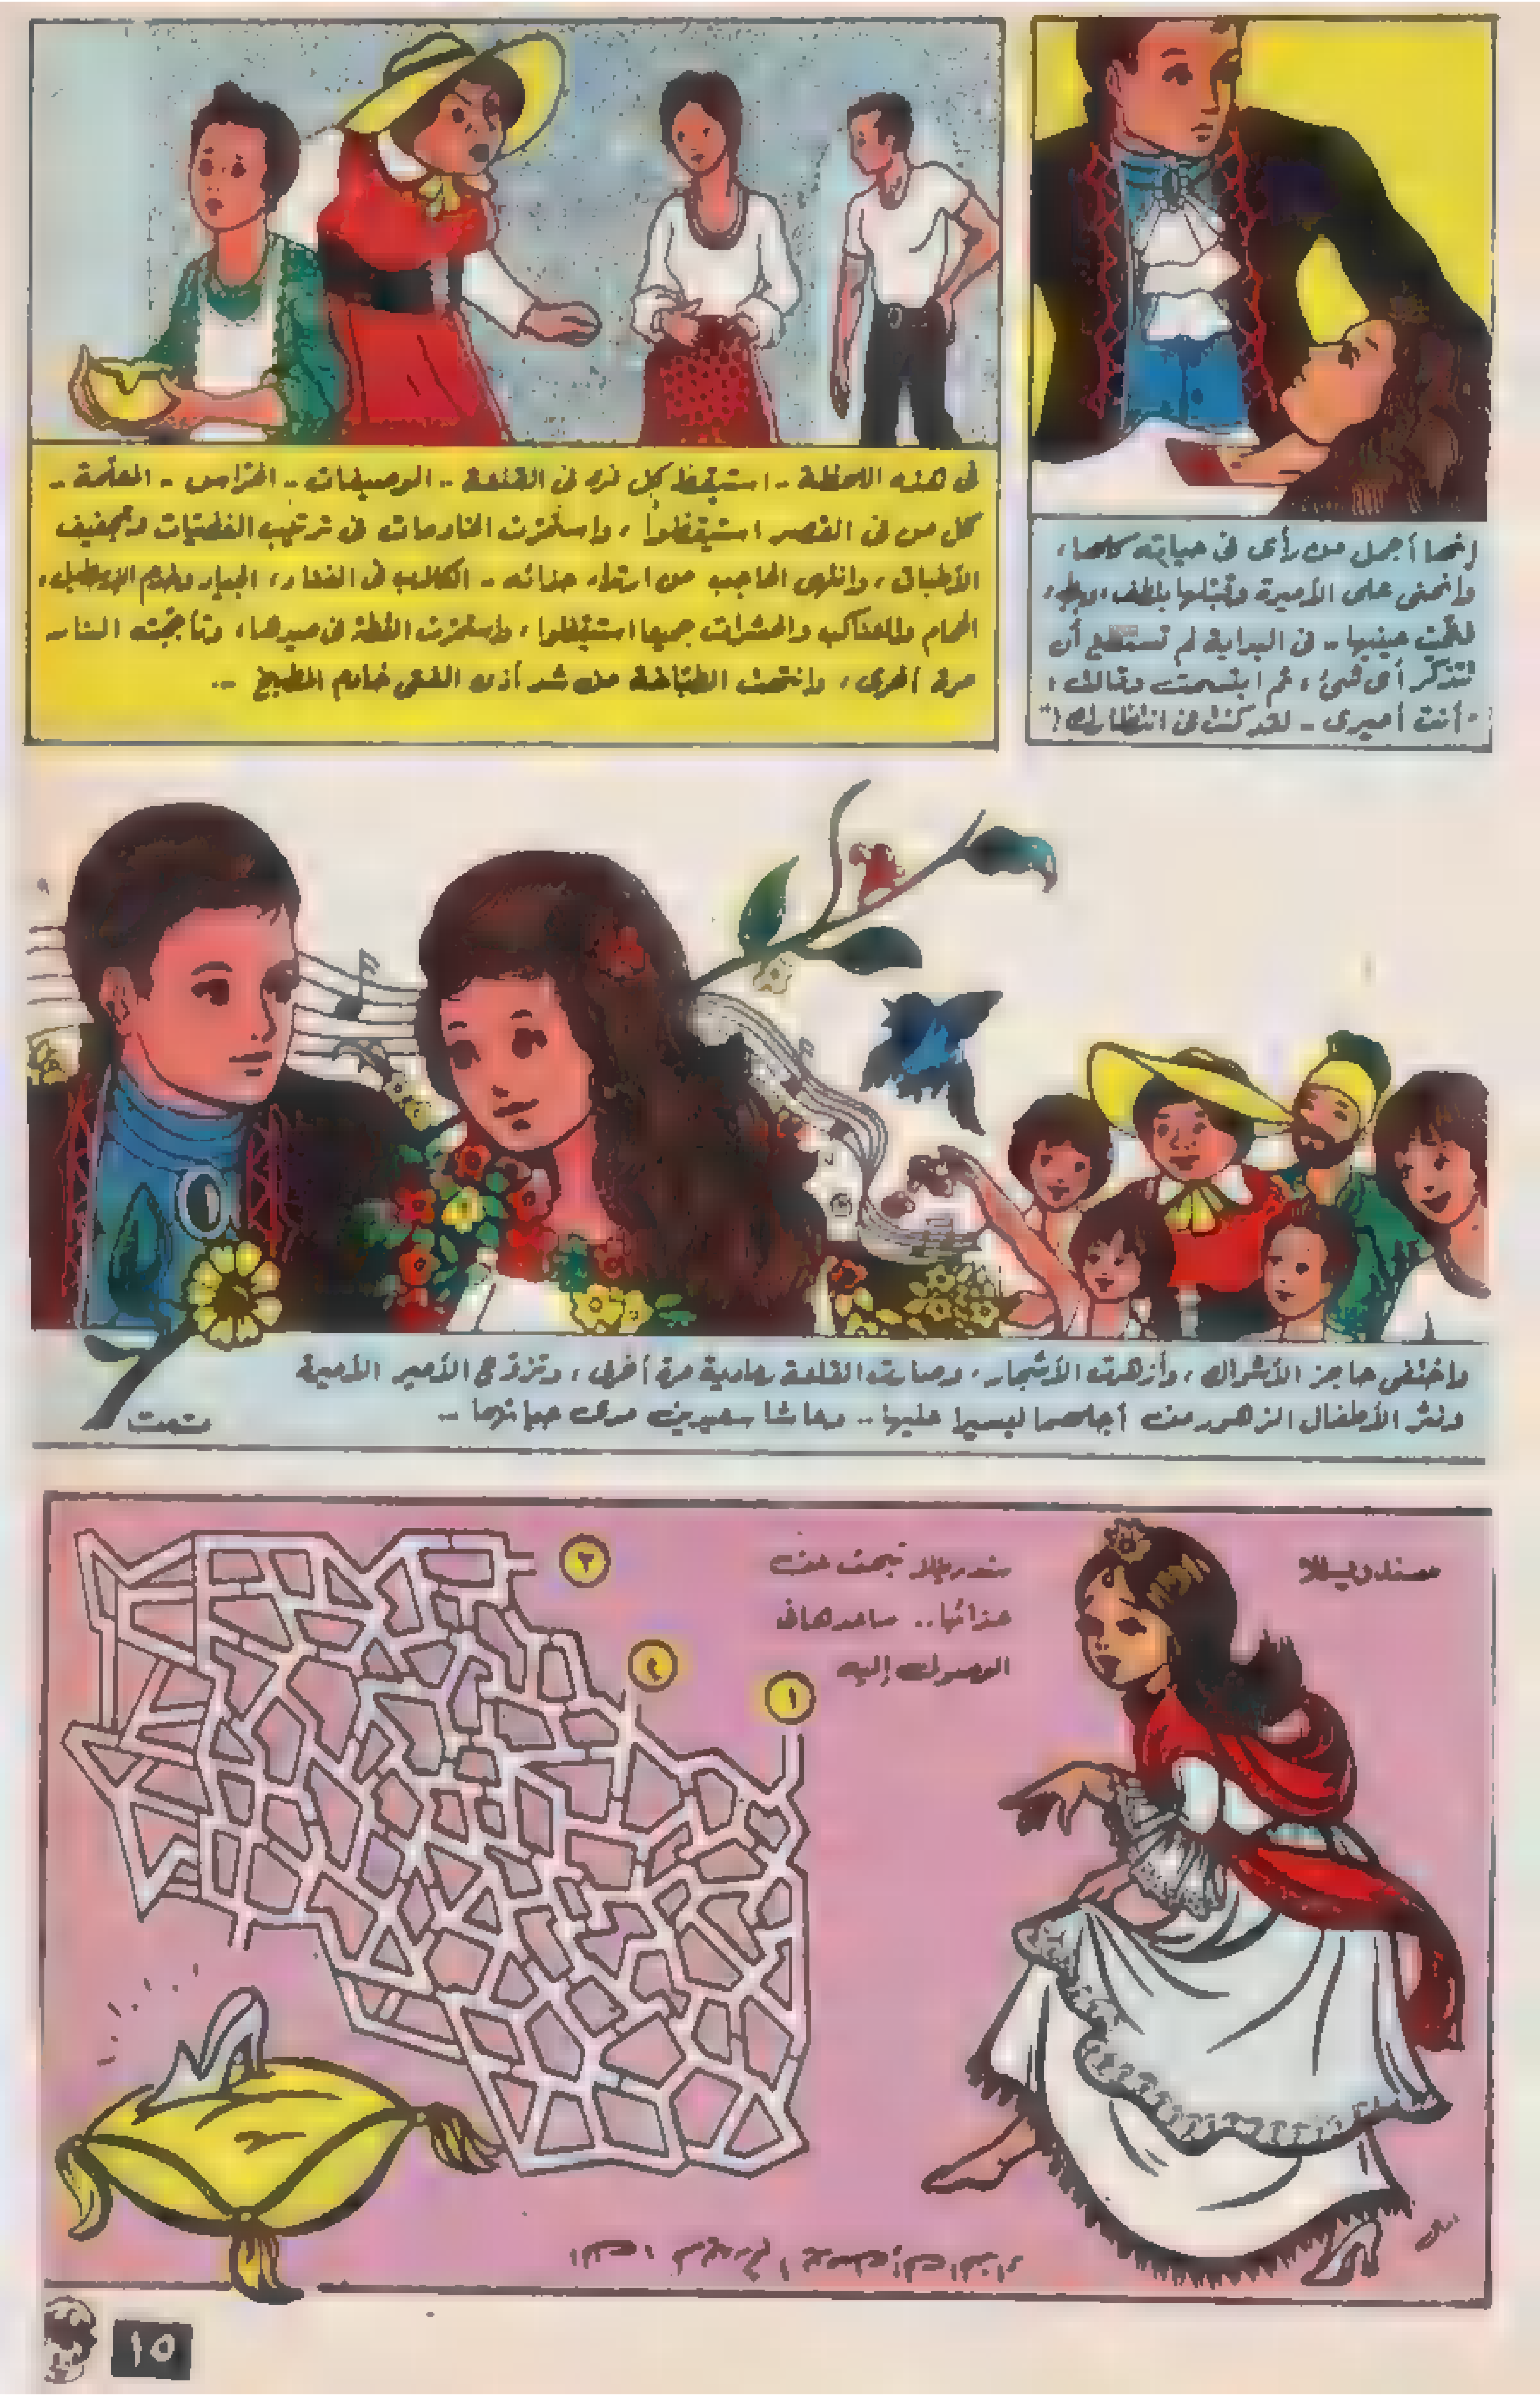 إنها أجمل من رأى فى حياته كلها،
وانحنى على الأميرة وقبّلها بلطف،
فتحت عينيها .. فى البداية لم تستطع أن
تتذكر أى شئ، ثم ابتسمت وقالت:
"أنت أميرى - لقد كنت فى انتظارك!"
فى هذه اللحظة - استيقظ كل فرد فى القلعة - الوصيفات - الحراس - المعلمة -
كل من فى القصر استيقظوا، واستمرت الخادمات فى ترتيب الفضيات وتجفيف
الأطباق، وانتهى الحاجب من ارتداء حذائه - الكلاب فى الفناء، الجياد فى الإسطبل،
الحمام والعناكب والحشرات جميعا استيقظوا، واستمرت القطة فى سيرها، وتأججت النار
مرة أخرى، وانتهت الطباخة من شد أذن الفتى خادم المطبخ ..
واختفى حاجز الأشواك، وأزهرت الأشجار، وصارت القلعة عادية مرة أخرى، وتزوج الأمير الأميرة
ونثر الأطفال الزهور من أجلهما ليسيرا عليها .. وعاشا سعيدين مدى حياتهما ..
تمت
سندريللا
سندريللا تبحث عن
حذائها .. ساعدها فى
الوصول إليه
١
٢
٣
١٥